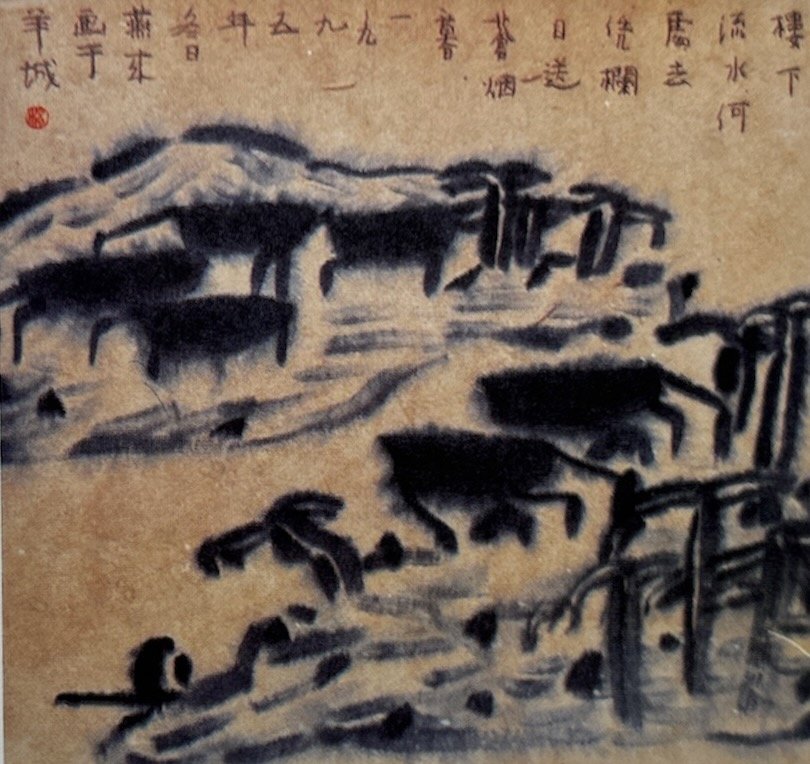 樓下
流水何
處去
凭欄
日送
蒼烟
暮
一
九
九
五
年
冬日
燕来
画于
羊城